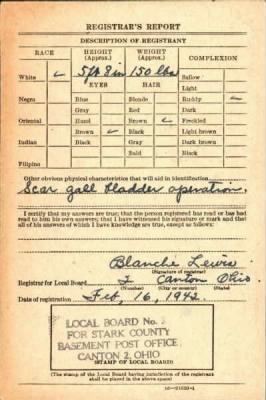 REGISTRAR'S REPORT
DESCRIPTION OF REGISTRANT
RACE HEIGHT (Approx.) WEIGHT (Approx.) COMPLEXION
5 ft 8 in 150 lbs
White ✓ Sallow
EYES HAIR Light
Negro Blue Blonde Ruddy ✓
Gray Red Dark
Oriental Hazel Brown ✓ Freckled
Brown ✓ Black Light brown
Indian Black Gray Dark brown
Bald Black
Filipino
Other obvious physical characteristics that will aid in identification
Scar gall bladder operation.
I certify that my answers are true; that the person registered has read or has had
read to him his own answers; that I have witnessed his signature or mark and that
all of his answers of which I have knowledge are true, except as follows:
Blanche Lewis
(Signature of registrar)
Registrar for Local Board 2 Canton Ohio
(Number) (City or county) (State)
Date of registration Feb, 16, 1942
LOCAL BOARD No. 2
FOR STARK COUNTY
BASEMENT POST OFFICE
CANTON 2, OHIO
(STAMP OF LOCAL BOARD)
(The stamp of the Local Board having jurisdiction of the registrant
shall be placed in the above space)